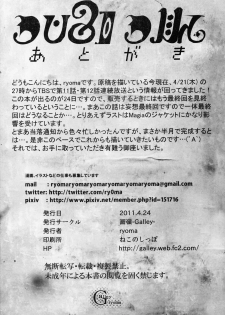 あとがき
どうもこんにちは、ryoma です。原稿を描いている今現在、4/21(木)
の27時からTBSで第11話・第12話連続放送という情報が回ってきました！
この本が出るのが24日ですので、販売するときにはもう最終回を見
終わっているということに…。まあこの話は妄想最終回ですので一体最終
回はどうなることか…。とりあえずラストはMagiaのジャケットにかなり影
響を受けてます。
とまあ当落通知から色々忙しかったんで、まさか半月で完成すると
は…。是非このペースでこれからもやっていきたいです…(ﾟAﾟ)
それでは、お手に取っていただき有難う御座いました。
漫画、イラストなどのお仕事も募集しています
mail : ryomaryomaryomaryomaryomaryoma@gmail.com
twitter : http://twitter.com/ry0ma
pixiv : http://www.pixiv.net/member.php?id=151716
発行日 2011.4.24
発行サークル 画廊-Galley-
発行者 ryoma
印刷所 ねこのしっぽ
HP galley.web.fc2.com/
無断転写・転載・複製禁止。
未成年の本書の閲覧を固く禁じます。